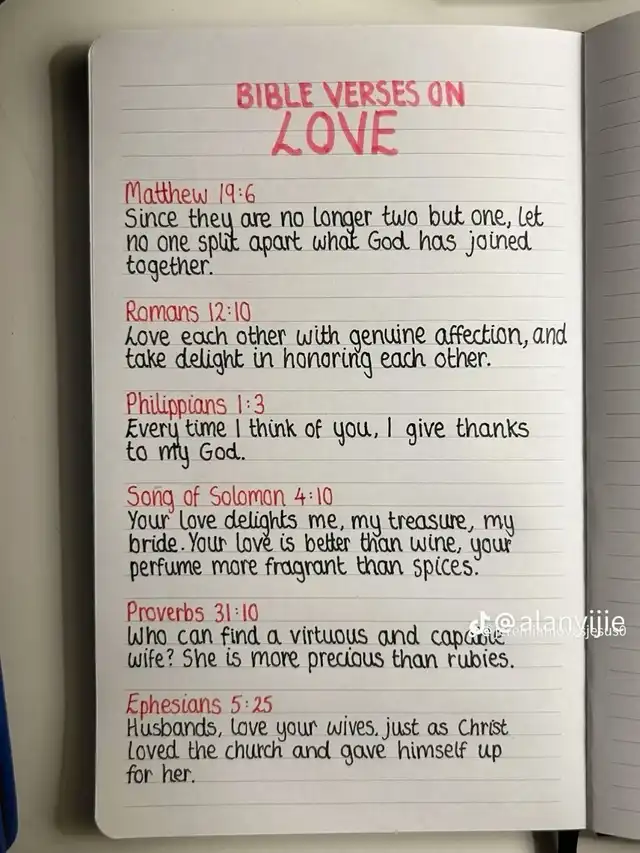 BIBLE VERSES ON
LOVE
Matthew 19:6
Since they are no longer two but one, let
no one split apart what God has joined
together.
Romans 12:10
Love each other with genuine affection, and
take delight in honoring each other.
Philippians 1:3
Every time I think of you, I give thanks
to my God.
Song of Solomon 4:10
Your love delights me, my treasure, my
bride. Your love is better than wine, your
perfume more fragrant than spices.
Proverbs 31:10
@alanyijie
Who can find a virtuous and capable
wife? She is more precious than rubies.
Ephesians 5:25
Husbands, love your wives. just as Christ
loved the church and gave himself up
for her.